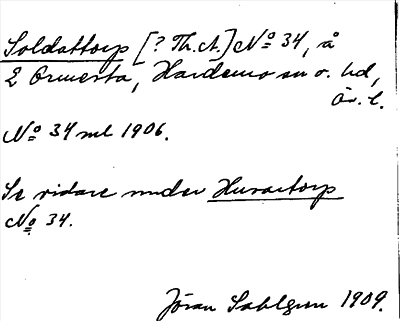 Soldattorp [? Th. A.] No 34, å
L Ormesta, Hardemo sn o. hd,
Ör. l.
No 34 ml 1906.
Se vidare under Husartorp
No 34.
Jöran Sahlgren 1909.